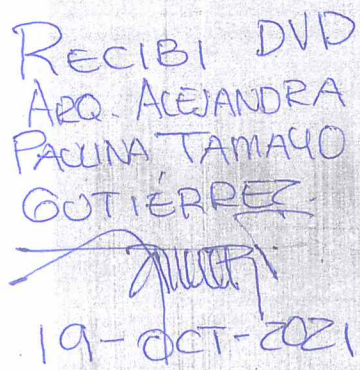 RECIBI DVD
ARQ. ALEJANDRA
PAULINA TAMAYO
GUTIÉRREZ.
19-OCT-2021